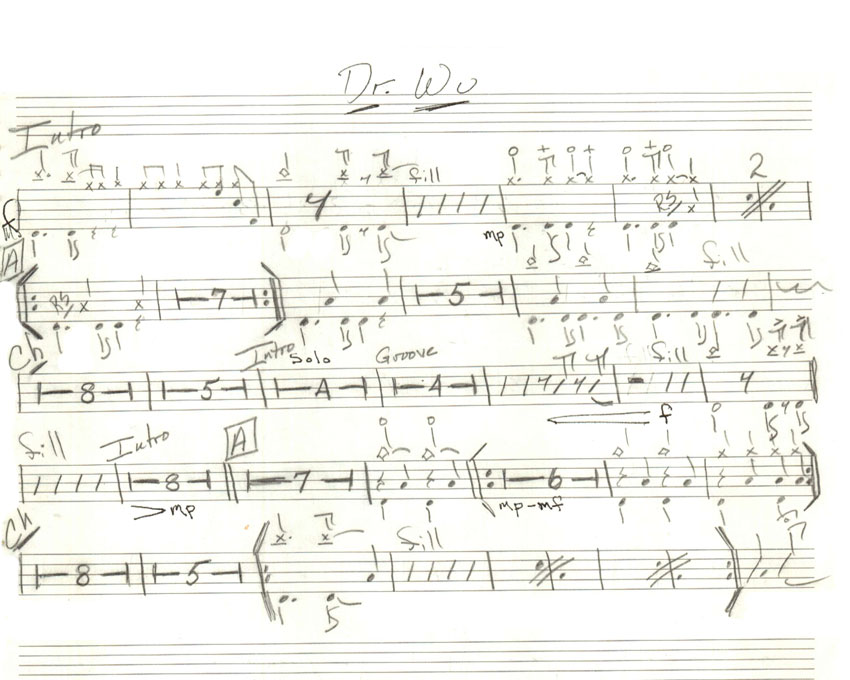 Dr. Wu
Intro
fill 2
f mp
A fill
7 5
Ch Intro Solo Groove fill
8 5 4 4
f
fill Intro A
8 7 6
mp mp-mf
Ch fill
8 5